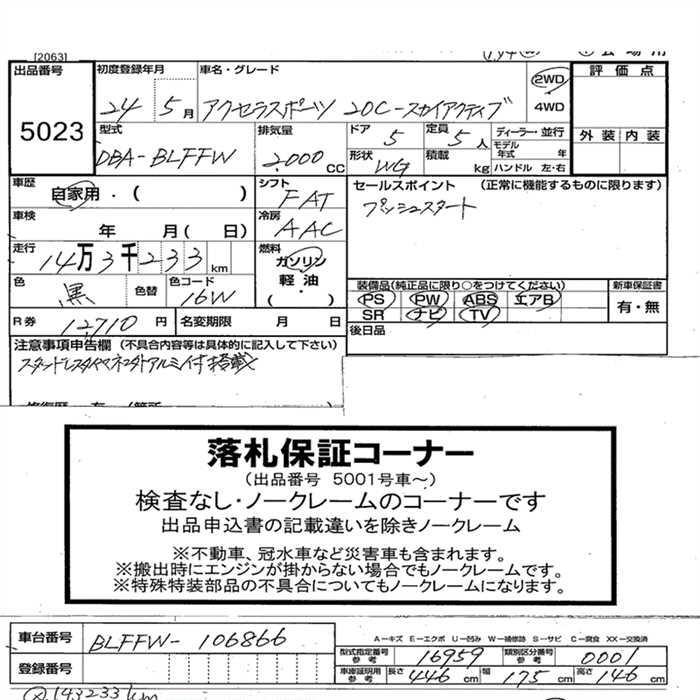 [2063]
出品番号
5023
初度登録年月
24 5月
車名・グレード
アクセラスポーツ 20C-スカイアクティブ
2WD
4WD
評価点
外装 内装
型式
DBA-BLFFW
排気量
2.000 CC
ドア
5
定員
5人
形状
WG
積載
kg
ディーラー・並行
モデル年式 年
ハンドル 左・右
車歴
自家用・( )
シフト
FAT
セールスポイント (正常に機能するものに限ります)
プッシュスタート
車検
年 月( 日)
冷房
AAC
走行
14万3千233km
燃料
ガソリン
軽油
( ・ )
色
黒
色替
色コード
16W
装備品(純正品に限り○をつけてください)
PS PW ABS エアB
SR ナビ TV
新車保証書
有・無
R券
12,710円
名変期限 月 日
後日品
注意事項申告欄 (不具合内容等は具体的に記入して下さい)
スタッドレスタイヤ アルミ付 搭載
落札保証コーナー
(出品番号 5001号車～)
検査なし・ノークレームのコーナーです
出品申込書の記載違いを除きノークレーム
※不動車、冠水車など災害車も含まれます。
※搬出時にエンジンが掛からない場合でもノークレームです。
※特殊特装部品の不具合についてもノークレームになります。
車台番号
BLFFW-106866
登録番号
A－キズ E－エクボ U－凹み W－補修跡 S－サビ C－腐食 XX－交換済
型式指定番号 参考
16959
類別区分番号 参考
0001
車庫証明用 参考
長さ 446cm 幅 175cm 高さ 146cm
143233km